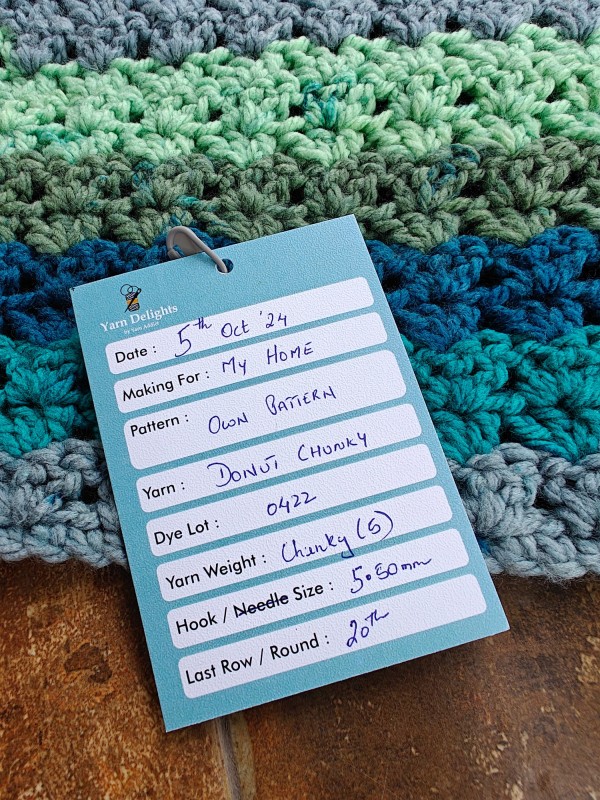 Yarn Delights
by Yarn Addict
Date : 5th Oct '24
Making For : My HOME
Pattern : OWN PATTERN
Yarn : DONUT CHUNKY
Dye Lot : 0422
Yarn Weight : Chunky (5)
Hook / Needle Size : 5.50mm
Last Row / Round : 20th